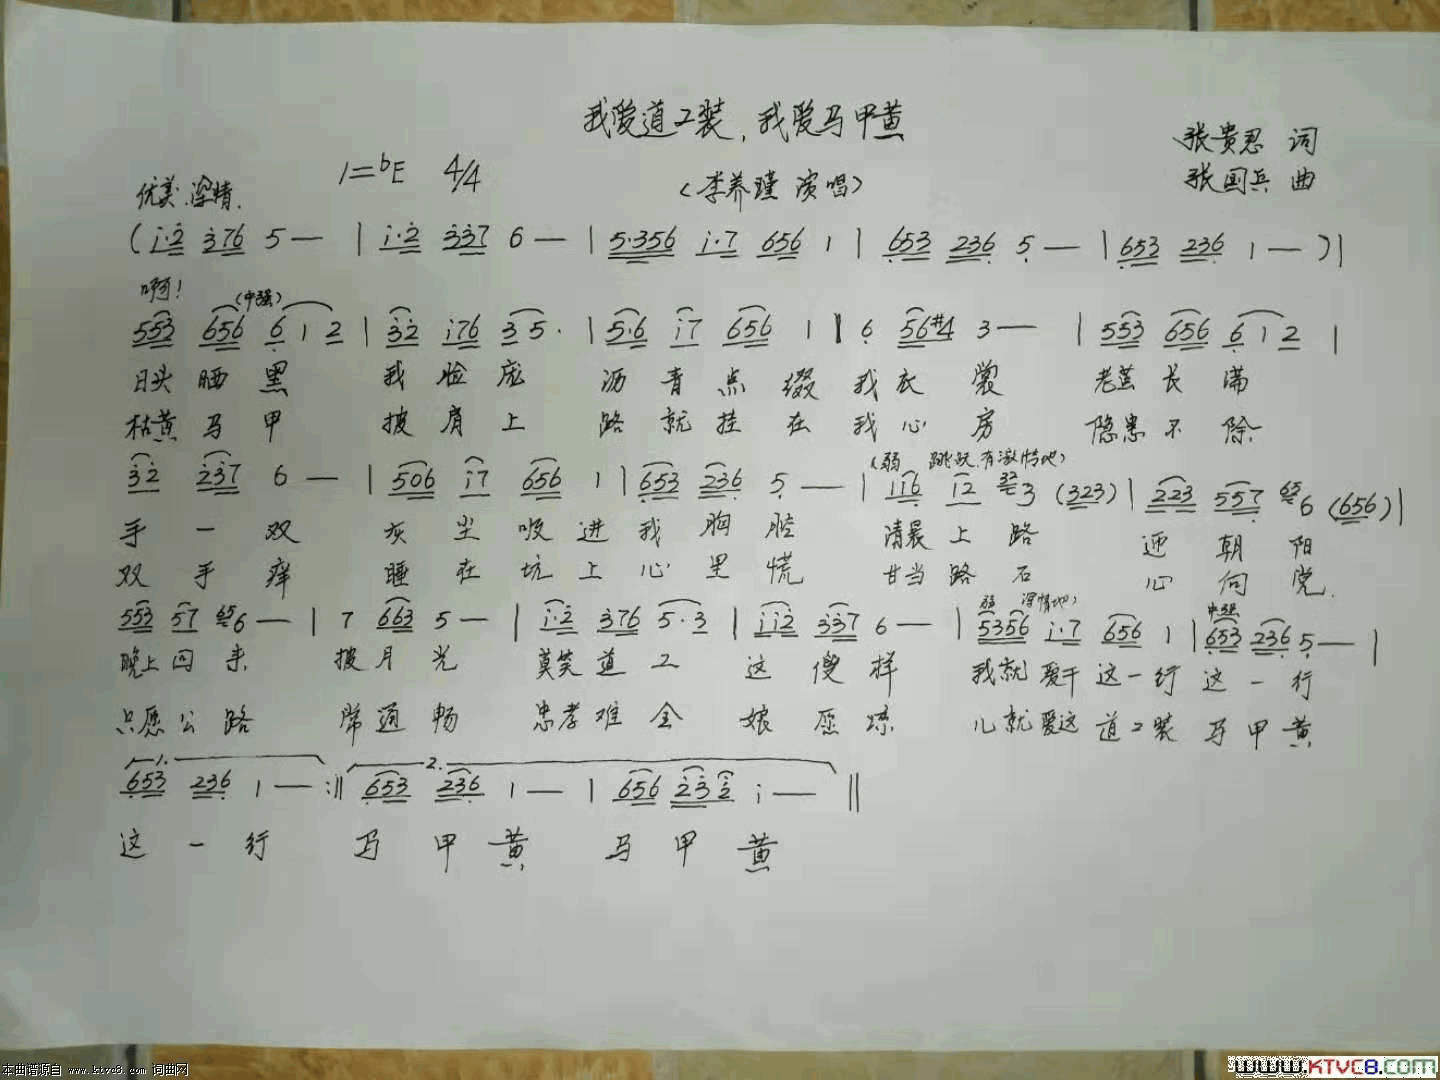 我爱道工装，我爱马甲黄
张贵忍 词
优美.深情. 1=bE 4/4 （李养瑾 演唱） 张国兵 曲
(i·2 376 5 — | i·2 337 6 — | 5·356 i·7 656 1 | 653 236 5 — | 653 236 1 — )|
啊! (中强)
553 656 6 1 2 | 32 i76 3 5· | 5·6 i7 656 1 | 6 56#4 3 — | 553 656 6 1 2 |
日头 晒 黑 我 脸 庞 沥 青 点 缀 我 衣 裳 老茧 长 满
枯黄 马 甲 披 肩 上 路 就 挂 在 我 心 房 隐患 不 除
(弱 跳跃.有激情地)
32 237 6 — | 506 i7 656 1 | 653 236 5 — | 116 12 32 3 (323) | 223 557 65 6 (656) |
手 一 双 灰 尘 吸 进 我 胸 腔 清晨 上 路 迎 朝 阳
双 手 痒 睡 在 坑 上 心 里 慌 甘当 路 石 心 向 党.
弱 深情地) 中强
553 57 65 6 — | 7 663 5 — | i·2 376 5·3 | ii2 337 6 — | 5356 i·7 656 1 | 653 236 5 — |
晚上 回 来 披 月 光 莫笑 道 工 这 傻 样 我就 爱干 这一行 这 一 行
只愿 公 路 常 通 畅 忠孝 难 全 娘 愿 谅 儿就 爱这 道工装 马 甲 黄
1. 2.
653 236 1 — :|| 653 236 1 — | 656 232 i — ||
这 一 行 马 甲 黄 马 甲 黄
本曲谱源自 www.ktvc8.com 词曲网
www.KTVC8.COM